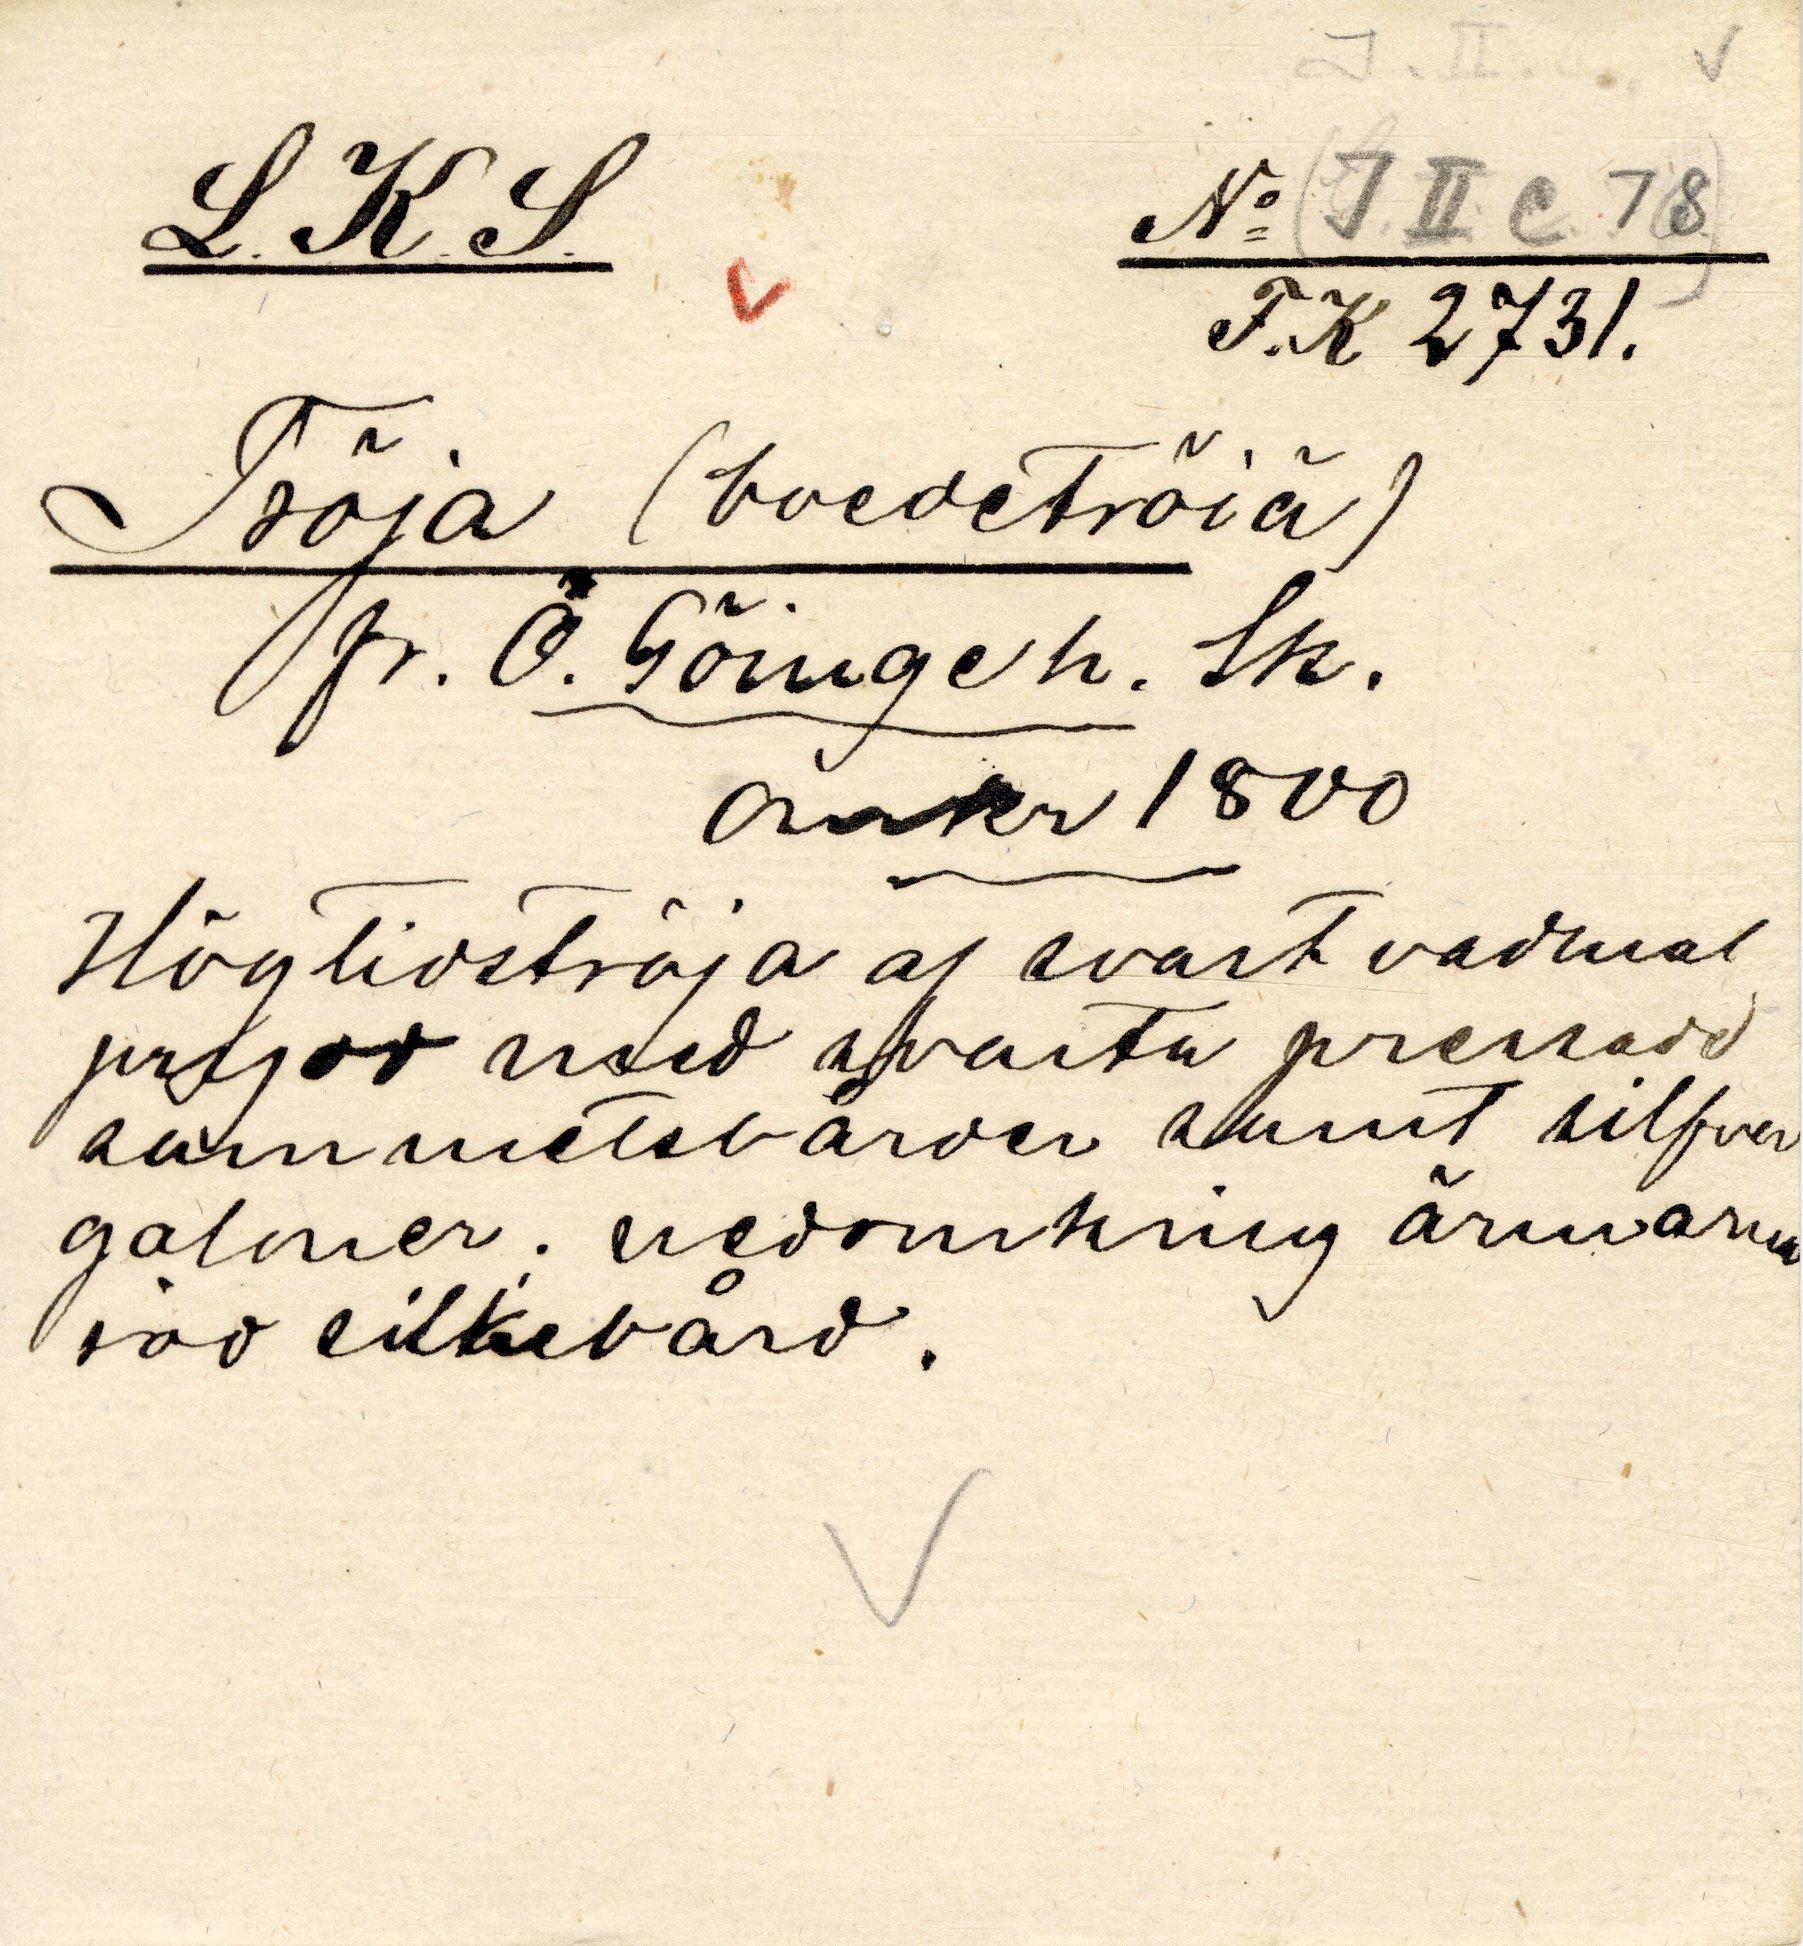 J. II.
L. K. S.
No (J II C. 78)
F.K 2731.
Tröja (boedeträiä)
fr. Ö. Göinge h. Sk.
1800
Högtidströja af svart vadmal
prydd med svarta pressade
sammetsbårder samt silfver
galoner. nedomkring ärmarna
röd silkebård.